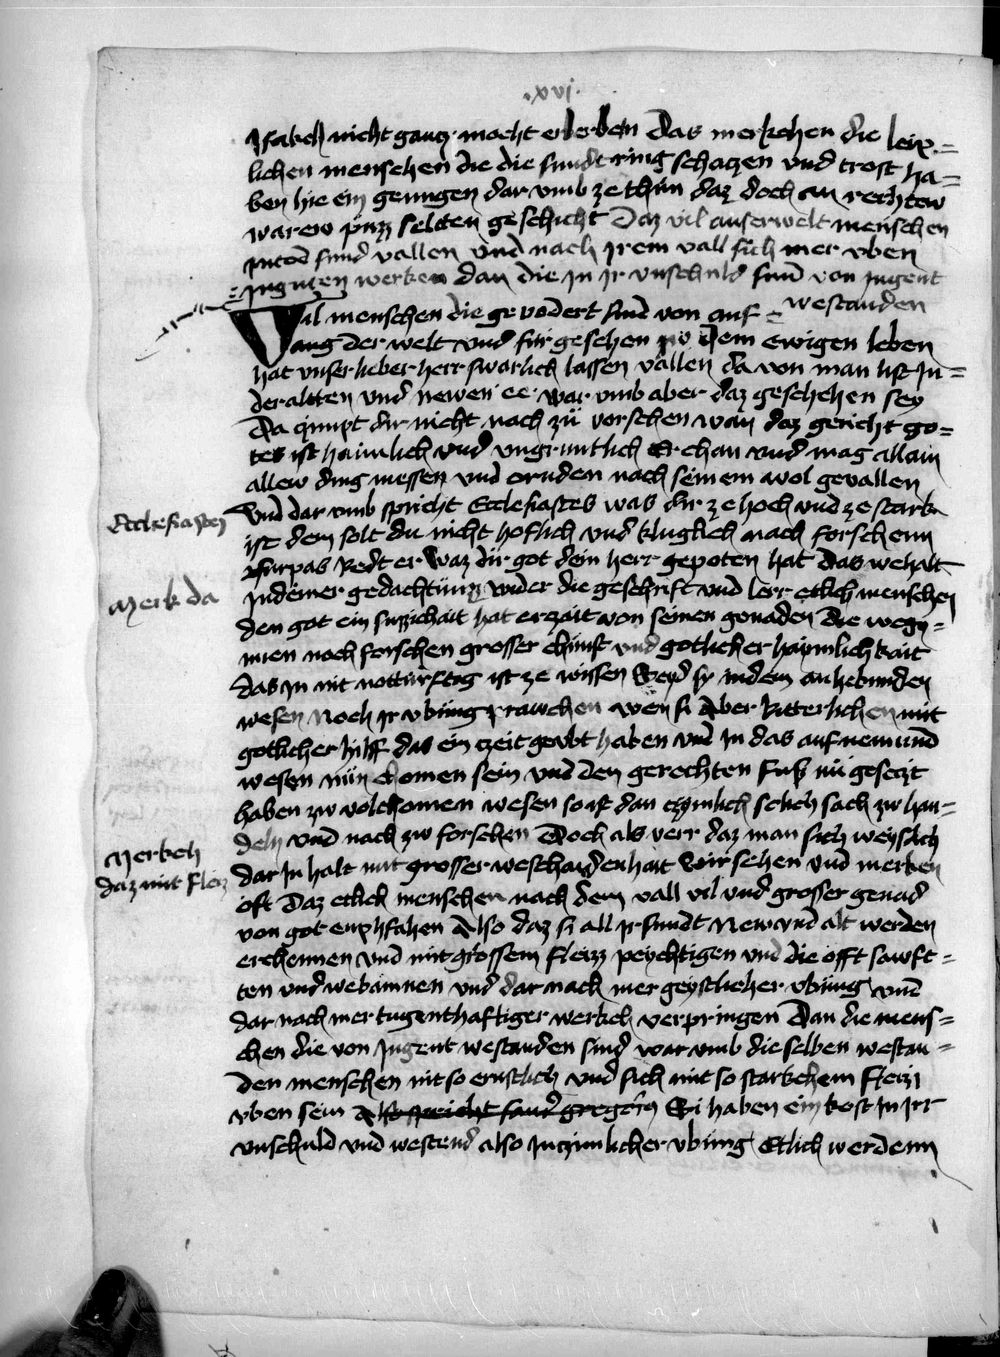 .xvj.
Jsabeli nicht gantz macht erberben Das merkchen die leip-
lichen menschen die die sundt ring schatzen vnd trost ha=
ben hie ein genugen dar vmb ze thun daz doch an rechtew
warew puzz selten geschicht Daz vil auserwelt menschen
Jn tod sund vallen vnd nach Jrem vall sich mer vben
Jn guten werken dan die Jn Jr vnschuld sind von Jugent
westanden
Vil menschen die gevodert sind von anf=
ang der welt vnd fürgesehen zů dem ewigen leben
hat vnser lieber herr swarlich lassen vallen da von man list Jn=
der altten vnd newen ee war vmb aber daz geschehen sey
Da czimpt dir nicht nach zü vorschen wan daz gericht go=
tes ist haimlich vnd vngruntlich Er chan vnd mag allain
allew ding messen vnd ornden nach seinem wol gevallen
Vnd dar vmb spricht Ecclesiastes was dir ze hoch vnd ze stark
ist dem solt du nicht hoflich vnd kluglich nach forschenn
furpas Redt er Waz dir got dein herr gepoten hat das wehalt
Jn deiner gedachtünzz wider die geschrift vnd lerr etlich menschen
den got ein suzzichait hat erzait von seinen gonaden die wegin=
nnen nach forschen grosser chunst vnd gotlicher haymlichkait
das Jn nit notturftig ist ze wissen Seyd sy indem anhebunden
wesen noch Jr vbung prawchen wen si Aber Ritterlichen mit
gotlicher hilff das ein czeit geubt haben vnd Jn das aufnemund
wesen nün chomen sein vnd den gerechten fuss nü gesetzt
haben zw volchomen wesen so ist dan czymlich solich sach zw han=
deln vnd nach zw forschen Doch als verr daz man sich weyslich
dar Jn halt mit grosser weschaidenhait Wir sehen vnd merken
oft Daz etlich menschen nach dem vall vil vnd grosser genad
von got enphfahen Also daz si all Jr sundt New vnd alt werden
erchennen vnd mit grossem fleizz peychtigen vnd die offt sawft=
ten vnd webainnen vnd dar nach mer geystlicher vbung vnd
dar nach mer tugenthaftiger werkch verpringen Dan die mens=
chen die von Jugent westanden sind war vmb die selben westan=
den menschen nit so ernstlich vnd sich mit so starkchem fleizz
vben sein Also spricht sand gregorius Si haben ein kost Jn Jrr
vnschuld vnd westend also Jn zimlicher vbung Etlich werdenn
Ecclesiastes
Merk da
Merkch
daz mit fleiz